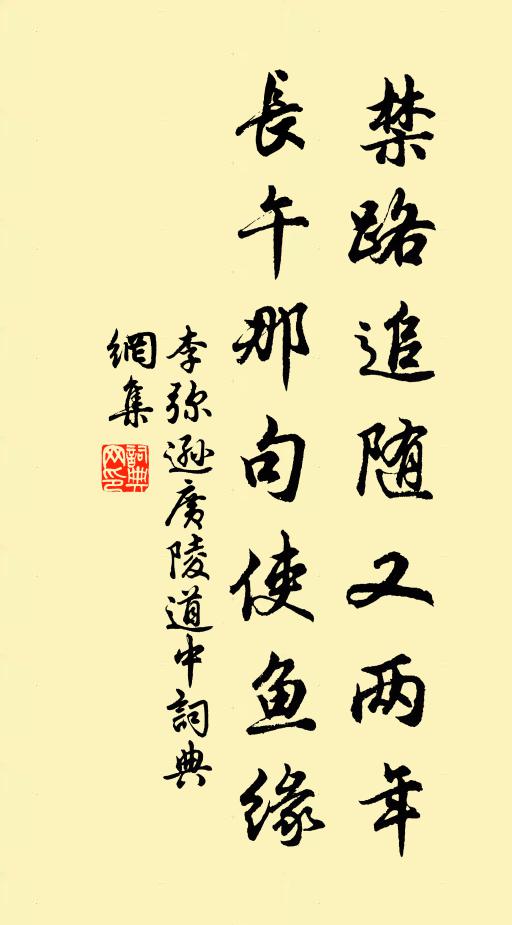 禁路追随又两年
長午那句使鱼缘
李弥遜廣陵道中詞典
網集
詞典
网印